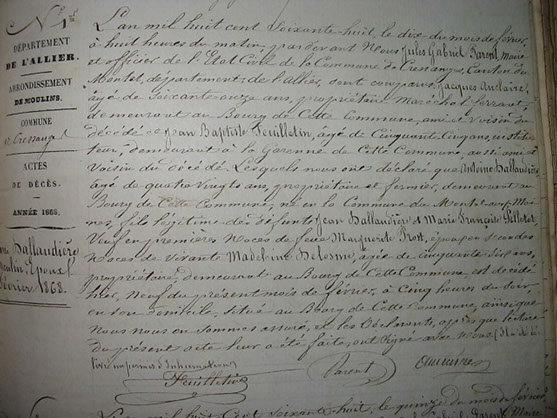 N° 1
DÉPARTEMENT
DE L'ALLIER.
ARRONDISSEMENT
DE MOULINS.
COMMUNE
de Cressanges
ACTES
DE DÉCÈS.
ANNÉE 1868.
Ballandière
Époux
février
1868.
L'an mil huit cent soixante huit, le dix du mois de février,
à huit heures du matin, pardevant Nous Jules Gabriel Parent, Maire
et officier de l'État Civil de la Commune de Cressanges, Canton du
Montet, département de l'Allier, sont comparus Jacques Auclaire,
âgé de soixante onze ans, propriétaire Maréchal ferrant,
demeurant au Bourg de Cette Commune, ami et Voisin du
décédé et Jean Baptiste Feuilletin, âgé de Cinquante Cinq ans,
teur, demeurant à la Garenne de Cette Commune, aussi ami et
Voisin du décédé. Lesquels nous ont déclaré que Antoine Ballandière
âgé de quatre vingts ans, propriétaire et fermier, demeurant au
Bourg de Cette Commune, né en la Commune du Montet aux Moi-
nes, fils légitime des défunts Jean Ballandière et Marie Françoise
Veuf en premières Noces de feue Marguerite Prost, époux en secondes
Noces de vivante Madeleine Delosme, âgée de Cinquante sept ans,
propriétaire, demeurant au Bourg de Cette Commune, est décédé
hier, Neuf du présent mois de février, à Cinq heures du soir
en son domicile, situé au Bourg de Cette Commune, ainsi que
Nous nous en sommes assuré, et les Déclarants, après que lecture
du présent acte leur a été faite, ont signé avec Nous.
Feuilletin Parent
L'an mil huit Cent soixante huit, le quinze du mois de février,